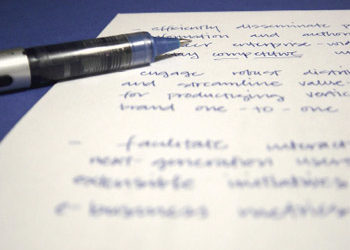 efficiently disseminate
and author
enterprise-wi
day competitive
engage robust distri
and streamline value-
for productizing vertic
brand one-to-one
- facilitate interac
next-generation users
extensible initiatives
e-business metrics